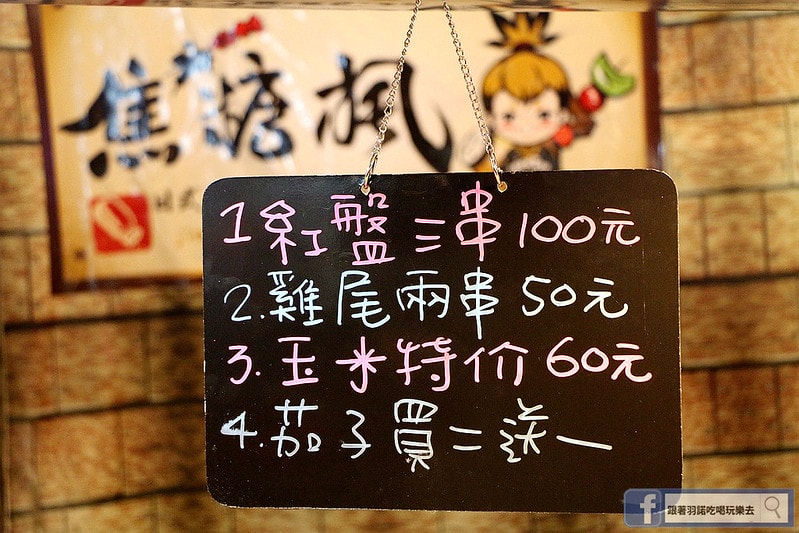 焦糖楓
1紅盤三串100元
2.雞尾兩串50元
3.玉米特价60元
4.茄子買二送一
f 跟著羽諾吃喝玩樂去